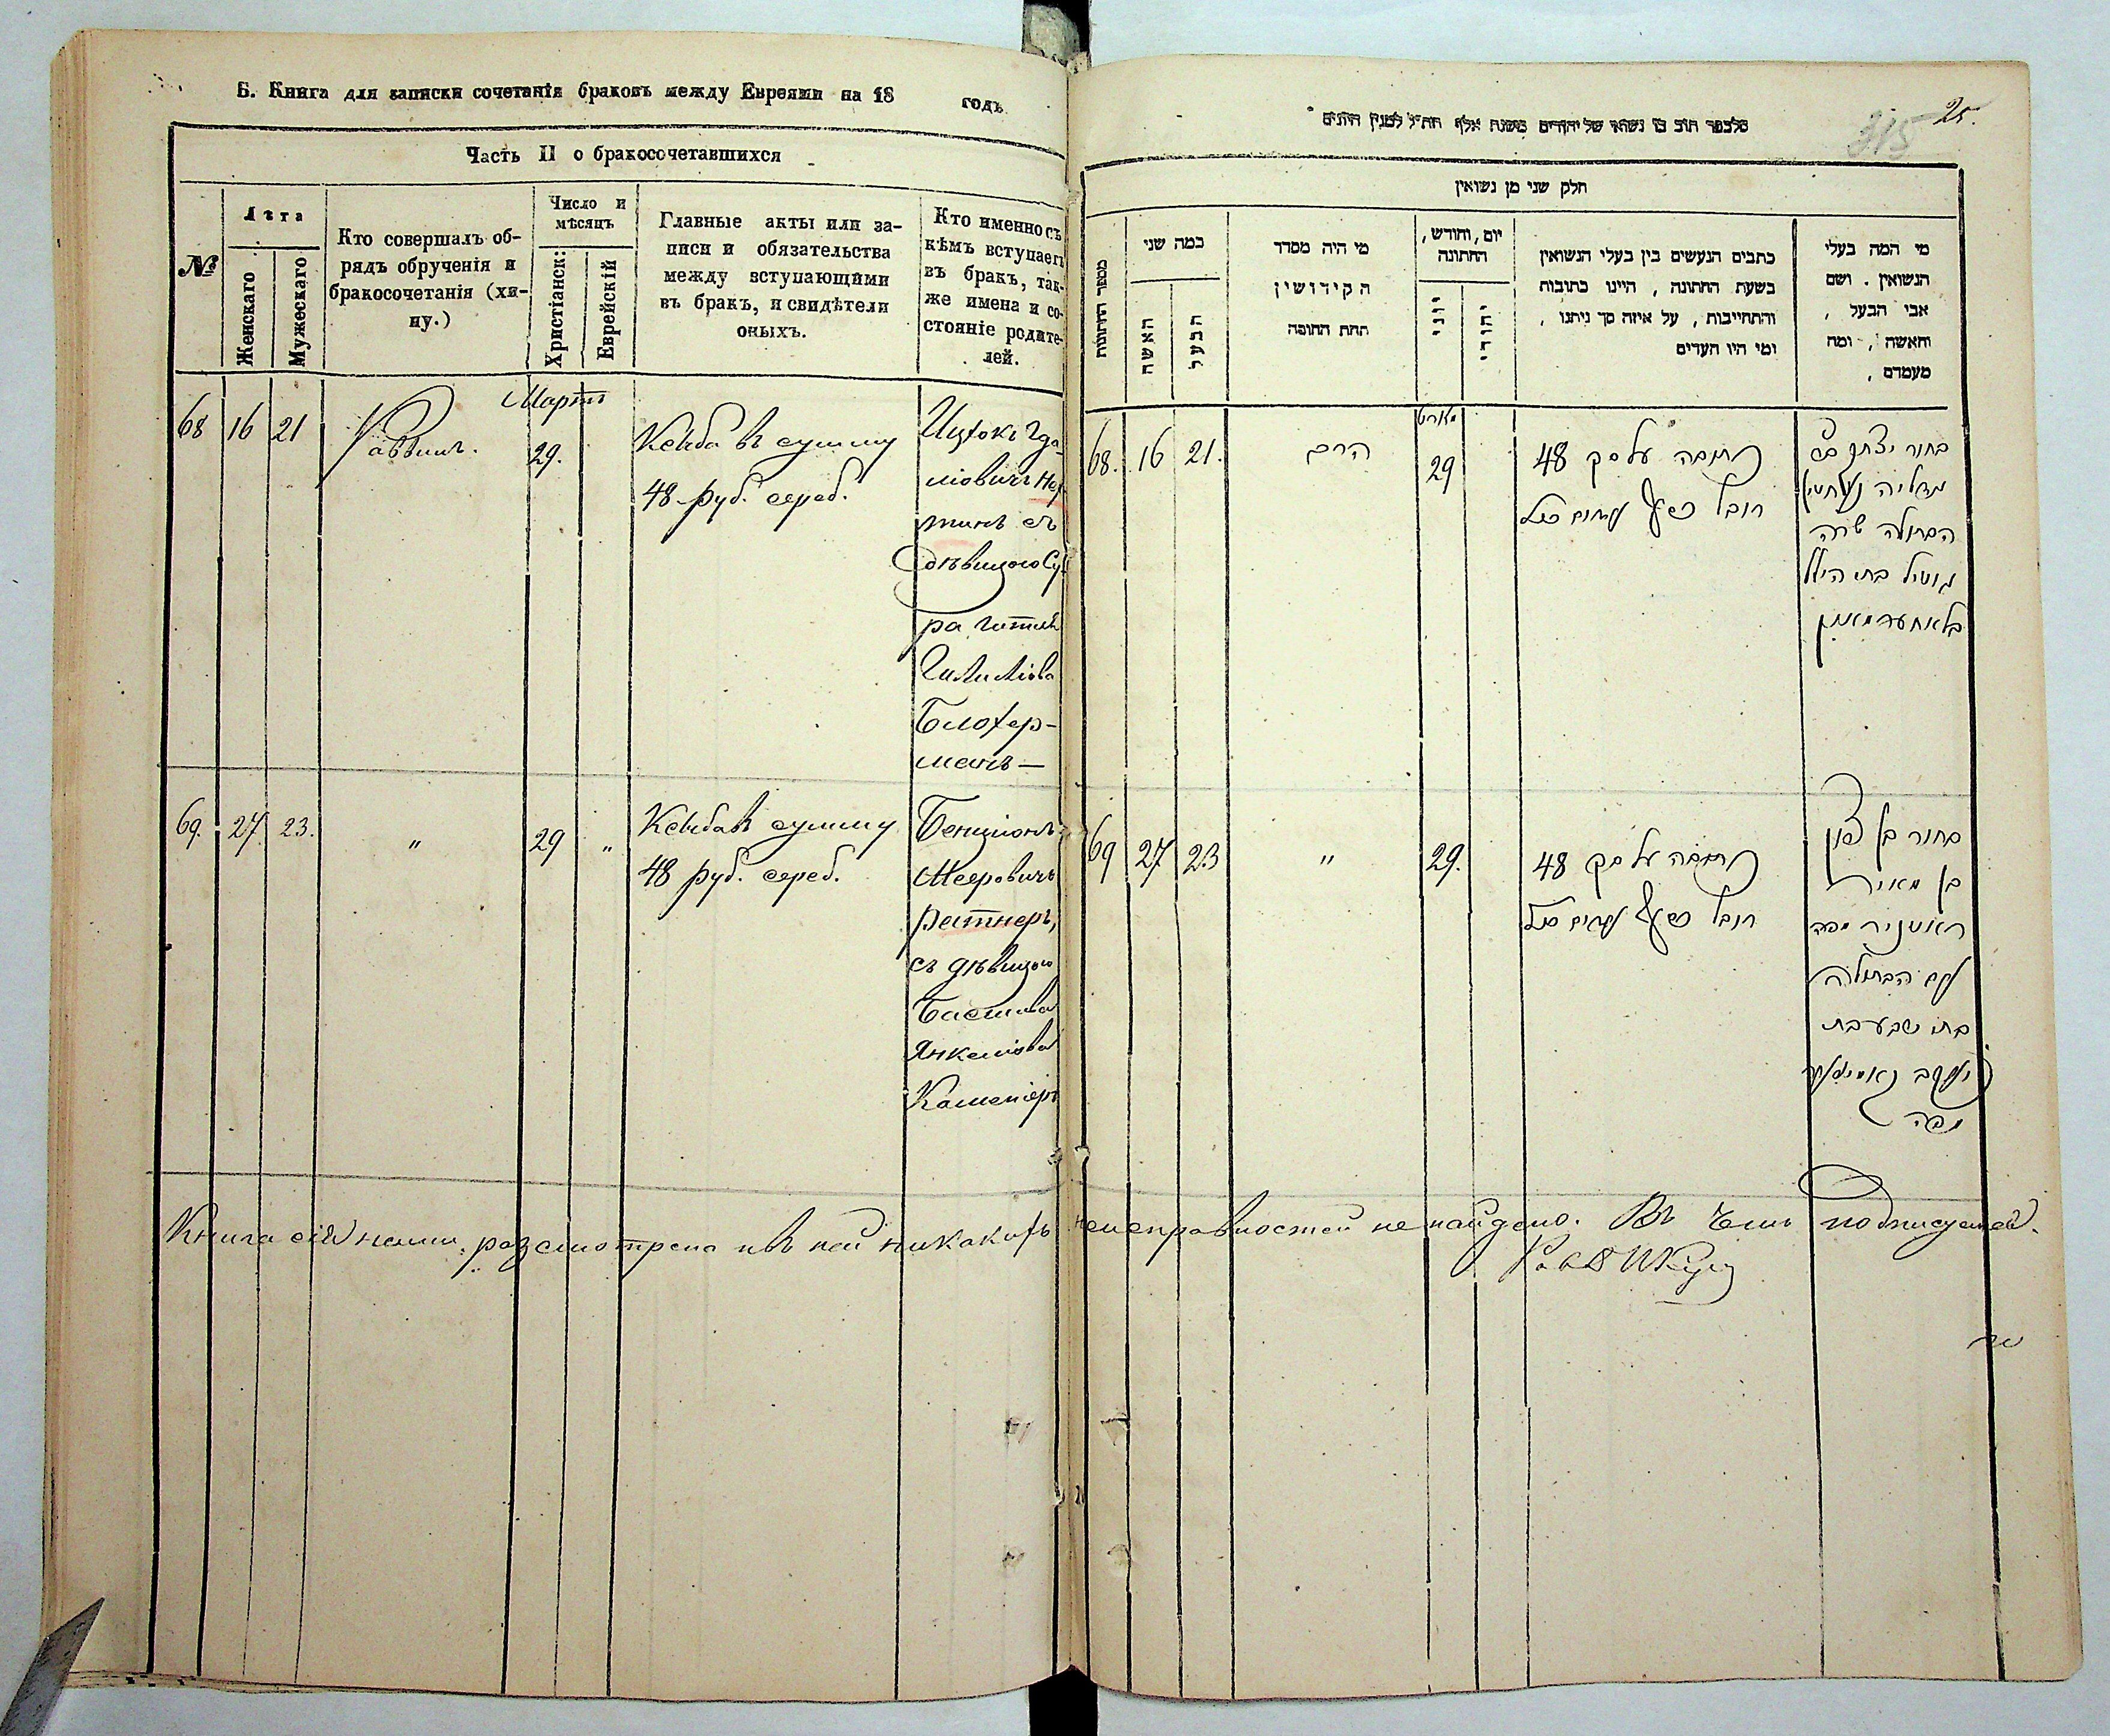 Б. Книга для записки сочетанія браковъ между Евреями на 18 годъ
Часть II о бракосочетавшихся
№
Лѣта
Женскаго
Мужескаго
Кто совершалъ об-
рядъ обрученія и
бракосочетанія (хи-
пу.)
Число и
мѣсяцъ
Христіанск:
Еврейскій
Главные акты или за-
писи и обязательства
между вступающими
въ бракъ, и свидѣтели
оныхъ.
Кто именно съ
кѣмъ вступаетъ
въ бракъ, так-
же имена и со-
стояніе родите-
лей.
68 16 21
Раввинъ.
Мартъ
29.
Ксиба въ сумму
48 руб. сереб.
Ицхокъ Гда-
ліовичъ
съ
дѣвицою Су-
ра Гитля
Гилліова
Блохер-
манъ —
69. 27. 23.
"
29 "
Ксиба въ сумму
48 руб. сереб.
Бенціонъ
Мееровичъ
Ретнеръ,
съ дѣвицою
Басшива
Янкеліова
Каменіеръ
25.
315
חלק שני מן נשואין
מספר החתונות
כמה שני
האשה
הבעל
מי היה מסדר
הקידושין
תחת החופה
יום, וחודש,
החתונה
יוני
יהודי
כתבים הנעשים בין בעלי הנשואין
בשעת החתונה, היינו כתובות
והתחייבות, על איזה סך ניתנו,
ומי היו העדים
מי המה בעלי
הנשואין. ושם
אבי הבעל,
והאשה, ומה
מעמדם,
68. 16 21.
הרב
מארט
29
כתובה על סך 48
רובל כסף
בחור יצחק בן
גדליה
הבתולה שרה
גיטיל בת הילל
בלאחערמאן
69 27 23
"
29.
כתובה על סך 48
רובל כסף
בחור בן ציון
בן מאיר
ראטניר מפה
עם הבתולה
בת שבע בת
יעקב
מפה
Книга сія нами разсмотрена и въ ней никакихъ неисправностей не найдено. Въ чемъ подписуемся.